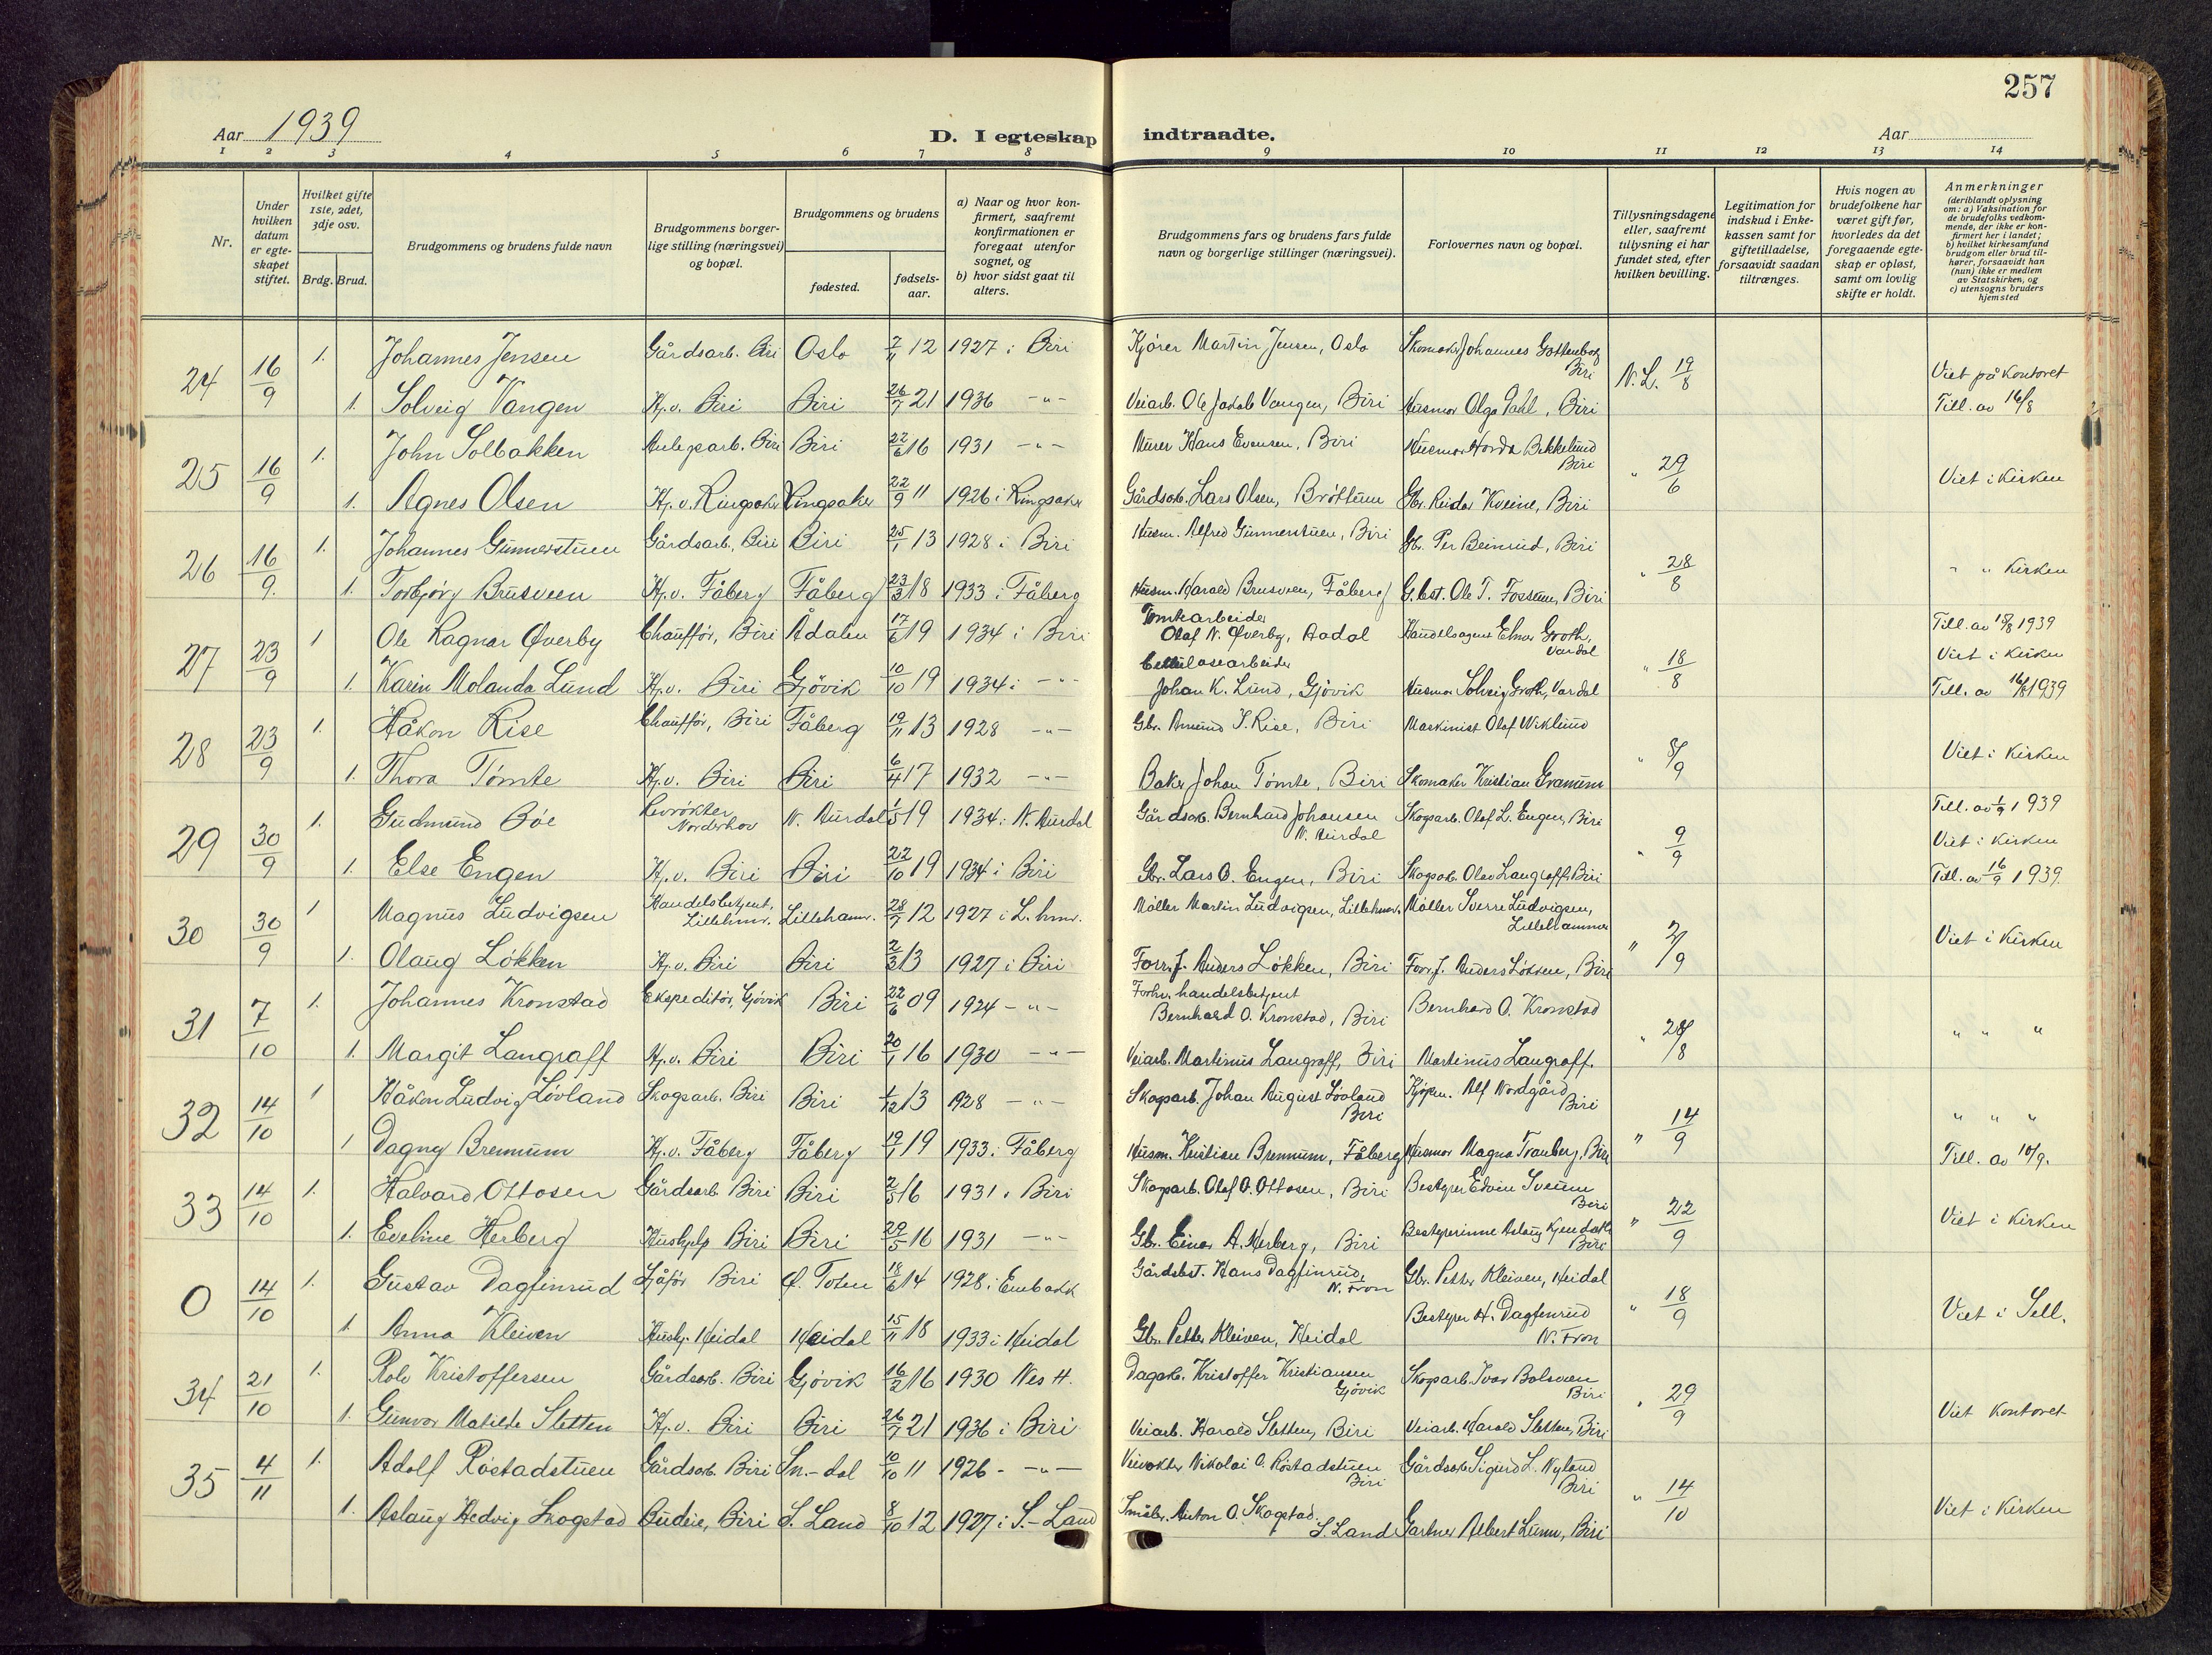 257
Aar 1939
D. I egteskap indtraadte.
Aar
1 2 3 4 5 6 7 8 9 10 11 12 13 14
Nr.
Under hvilken datum er egteskapet stiftet.
Hvilket gifte 1ste, 2det, 3dje osv.
Brdg. Brud.
Brudgommens og brudens fulde navn
Brudgommens borgerlige stilling (næringsvei) og bopæl.
Brudgommens og brudens
fødested.
fødselsaar.
a) Naar og hvor konfirmert, saafremt konfirmationen er foregaat utenfor sognet, og
b) hvor sidst gaat til alters.
Brudgommens fars og brudens fars fulde navn og borgerlige stillinger (næringsvei).
Forlovernes navn og bopæl.
Tillysningsdagene eller, saafremt tillysning ei har fundet sted, efter hvilken bevilling.
Legitimation for indskud i Enkekassen samt for giftetilladelse, forsaavidt saadan tiltrænges.
Hvis nogen av brudefolkene har været gift før, hvorledes da det foregaaende egteskap er opløst, samt om lovlig skifte er holdt.
Anmerkninger (deriblandt oplysning om: a) Vaksination for de brudefolks vedkommende, der ikke er konfirmert her i landet; b) hvilket kirkesamfund brudgom eller brud tilhører, forsaavidt han (hun) ikke er medlem av Statskirken, og c) utensogns bruders hjemsted
24 16/9 1. Johannes Jensen Gårdsarb. Biri Oslo 7/11 12 1927 i Biri Kjører Martin Jensen, Oslo Skomaker Johannes Gottenborg Biri N.L. 19/8 Viet på Kontoret
1. Solveig Vangen Hj.v. Biri Biri 26/7 21 1936 -"- Veiarb. Ole Jakob Vangen, Biri Husmor Olga Dahl, Biri Till. av 16/8
25 16/9 1. John Solbakken Anlegsarb. Biri Biri 22/6 16 1931 -"- Murer Hans Evensen, Biri Husmor Horda Bekkelund Biri " 29/6 Viet i Kirken
1. Agnes Olsen Hj.v. Ringsaker Ringsaker 22/9 11 1926 i Ringsaker Gårdsarb. Lars Olsen, Brøttum Gbr. Reidar Kveine, Biri
26 16/9. 1. Johannes Gunnerstuen Gårdsarb., Biri Biri 25/1 13 1928 i Biri Husm. Alfred Gunnerstuen, Biri Gbr. Per Beinrud, Biri " 28/8 " " Kirken
1. Torbjørg Brusveen Hj.v. Fåberg Fåberg 23/3 18 1933 i Fåberg Husm. Harald Brusveen, Fåberg G.best. Ole T. Fossum, Biri
27 23/9 1 Ole Ragnar Øverby Chauffør, Biri Ådalen 17/6 19 1934 i Biri Tomtearbeider Olaf N. Øverby, Aadal Handelsagent Elmer Groth, Vardal " 18/8 Till. av 18/8 1939
Viet i Kirken
1. Karin Molanda Lund Hj.v. Biri Gjøvik 10/10 19 1934 i -"- Cellulosearbeider Johan K. Lund, Gjøvik Husmor Solveig Groth, Vardal Till. av 16/8 1939
28 23/9 1. Håkon Rise Chauffør, Biri Fåberg 19/11 13 1928 -"- Gbr. Amund S. Rise, Biri Maskinist Olaf Wiklund " 8/9 Viet i Kirken
1. Thora Tømte Hj.v. Biri Biri 6/4 17 1932 -"- Baker Johan Tømte, Biri Skomaker Kristian Granum
29 30/9 1. Gudmund Bøe Revrøkter Norderhov N. Aurdal 1/5 19 1934 i N. Aurdal Gårdsarb. Bernhard Johansen N. Aurdal Skogsarb. Olaf L. Engen, Biri " 9/9 Till. av 1/9 1939
Viet i Kirken
1. Else Engen Hj.v. Biri Biri 22/10 19 1934 i Biri Gbr. Lars O. Engen, Biri Skogsarb. Olav Langraff, Biri Till. av 16/9 1939.
30 30/9 1 Magnus Ludvigsen Handelsbetjent, Lillehmr. Lilleham. 28/7 12 1927 i L.hmr. Møller Martin Ludvigsen, Lillehmr. Møller Sverre Ludvigsen, Lillehammer " 2/9 Viet i Kirken
1. Olaug Løkken Hj.v. Biri Biri 2/3 13 1927 i Biri Forr.f. Anders Løkken, Biri Forr.f. Anders Løkken, Biri
31 7/10 1. Johannes Kronstad Ekspeditør, Gjøvik Biri 22/6 09 1924 -"- Forhv. handelsbetjent Bernhard O. Kronstad, Biri Bernhard O. Kronstad " 28/8 " " "
1. Margit Langraff Hj.v. Biri Biri 20/1 16 1930 -"- Veiarb. Martinus Langraff, Biri Martinus Langraff.
32 14/10 1 Håkon Ludvig Løvland Skogsarb. Biri Biri 1/12 13 1928 -"- Skogsarb. Johan August Løvland Biri Kjøpm. Alf Nordgård Biri " 14/9 " " "
1 Dagny Brennum Hj.v. Fåberg Fåberg 19/1 19 1933 i Fåberg Husm. Kristian Brennum, Fåberg Husmor Magna Tranberg, Biri Till. av 10/9.
33 14/10 1. Halvard Ottosen Gårdsarb. Biri Biri 2/5 16 1931 i Biri Skogsarb. Olaf O. Ottosen, Biri Bestyrer Edvin Sveum Biri " 22/9 Viet i Kirken
1. Eveline Herberg Hushjelp Biri Biri 29/5 16 1931 -"- Gbr. Einar A. Herberg, Biri Bestyrerinne Aslaug Kjendseth Biri
0 14/10 1. Gustav Dagfinrud Sjåfør Biri Ø. Toten 18/6 14 1928 i Gårdsbst. Hans Dagfinrud, N. Fron Gbr. Petter Kleiven, Heidal " 18/9 Viet i Sell.
1 Anna Kleiven Hushj. Heidal Heidal 15/11 18 1933 i Heidal Gbr. Petter Kleiven, Heidal Bestyrer H. Dagfinrud N. Fron
34 21/10 1. Rolv Kristoffersen Gårdsarb. Biri Gjøvik 16/2 16 1930 Nes H. Dagarb. Kristoffer Kristiansen Gjøvik Skogsarb. Ivar Bolsveen Biri " 29/9 Viet Kontoret
1. Gunvor Matilde Sletten Hj.v. Biri Biri 26/7 21 1936 i Biri Veiarb. Harald Sletten, Biri Veiarb. Harald Sletten, Biri
35 4/11 1. Adolf Røstadstuen Gårdsarb. Biri Sn.-dal 10/10 11 1926 -"- Veivokter Nikolai O. Røstadstuen Biri Gårdsarb. Sigurd L. Nyland Biri " 14/10 Viet i Kirken
1. Aslaug Hedvig Skogstad Budeie, Biri S. Land 8/10 12 1927 i S.-Land Småbr. Anton O. Skogstad, S. Land Gartner Albert Lunn, Biri